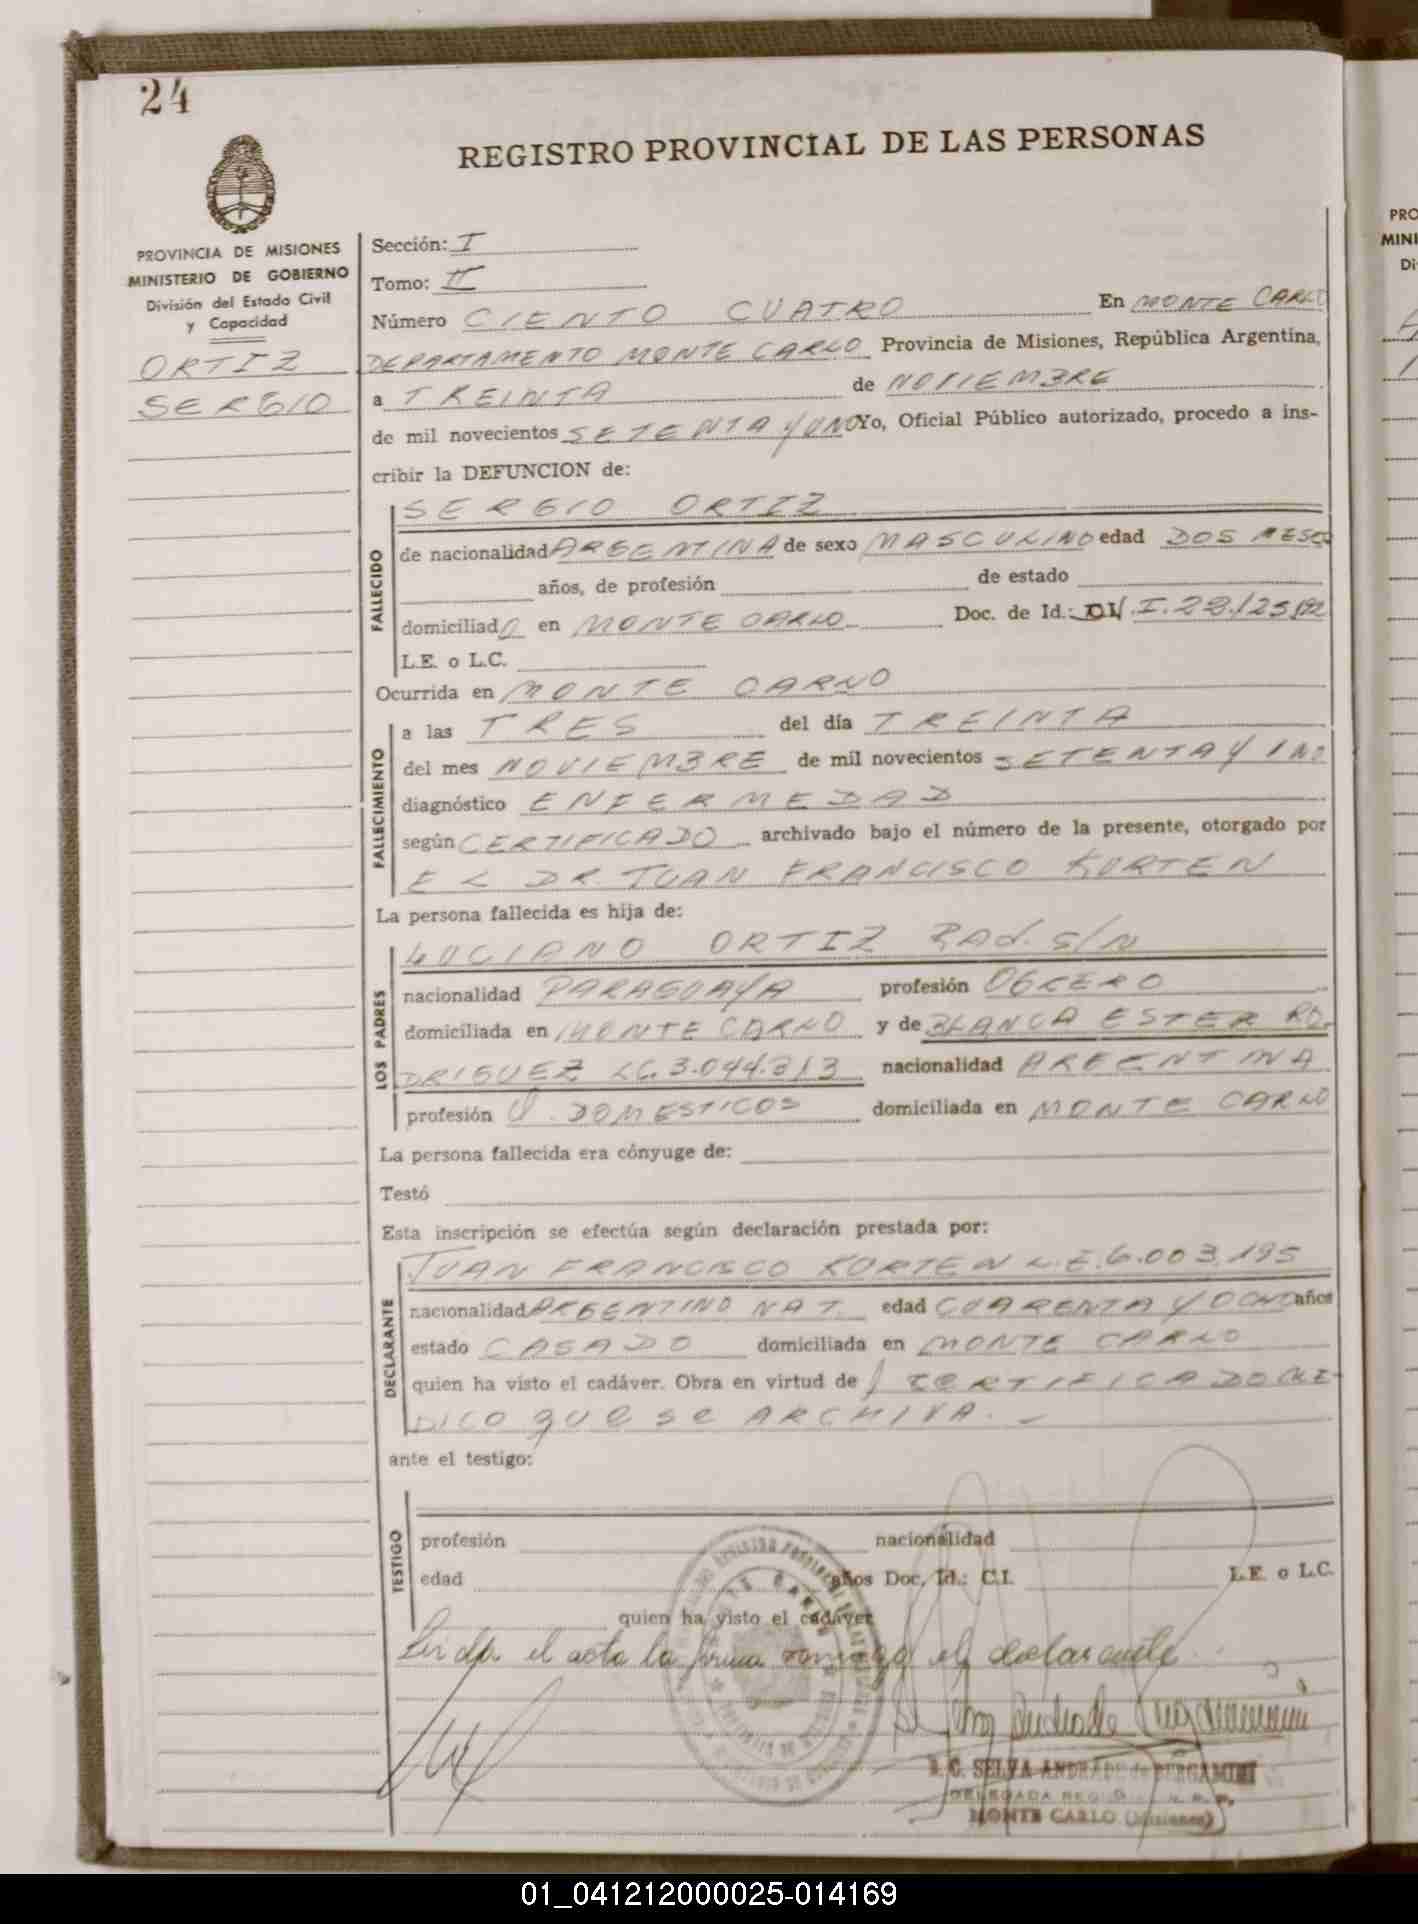 24
REGISTRO PROVINCIAL DE LAS PERSONAS
PROVINCIA DE MISIONES
MINISTERIO DE GOBIERNO
División del Estado Civil
y Capacidad
ORTIZ
SERGIO
Sección: I
Tomo: II
Número CIENTO CUATRO En MONTE CARLO
DEPARTAMENTO MONTE CARLO Provincia de Misiones, República Argentina,
a TREINTA de NOVIEMBRE
de mil novecientos SETENTA Y UNO Yo, Oficial Público autorizado, procedo a ins-
cribir la DEFUNCION de:
SERGIO ORTIZ
FALLECIDO
de nacionalidad ARGENTINA de sexo MASCULINO edad DOS MESES
años, de profesión de estado
domiciliado en MONTE CARLO Doc. de Id.:
L.E. o L.C.
Ocurrida en MONTE CARLO
FALLECIMIENTO
a las TRES del día TREINTA
del mes NOVIEMBRE de mil novecientos SETENTA Y UNO
diagnóstico ENFERMEDAD
según CERTIFICADO archivado bajo el número de la presente, otorgado por
EL DR. JUAN FRANCISCO KORTEN
La persona fallecida es hija de:
LOS PADRES
LUCIANO ORTIZ s/N
nacionalidad PARAGUAYA profesión OBRERO
domiciliada en MONTE CARLO y de BLANCA ESTER RO-
DRIGUEZ LC. 3.044.213 nacionalidad ARGENTINA
profesión Q. DOMESTICOS domiciliada en MONTE CARLO
La persona fallecida era cónyuge de:
Testó
Esta inscripción se efectúa según declaración prestada por:
DECLARANTE
JUAN FRANCISCO KORTEN L.E. 6.003.195
nacionalidad ARGENTINO NAT. edad CUARENTA Y OCHO años
estado CASADO domiciliada en MONTE CARLO
quien ha visto el cadáver. Obra en virtud de CERTIFICADO ME-
DICO que se ARCHIVA.-
ante el testigo:
TESTIGO
profesión nacionalidad
edad años Doc. Id.: C.I. L.E. o L.C.
quien ha visto el cadáver
Leida el acta la firma conmigo el declarante.
S. C. SELVA ANDRADE de BERGAMINI
MONTE CARLO (Misiones)
PRO
MINI
Di
01_041212000025-014169